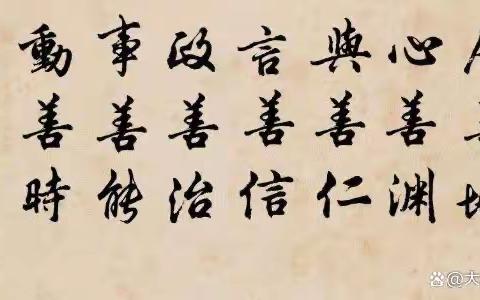 心善渊
與善仁
言善信
政善治
事善能
動善時
@大